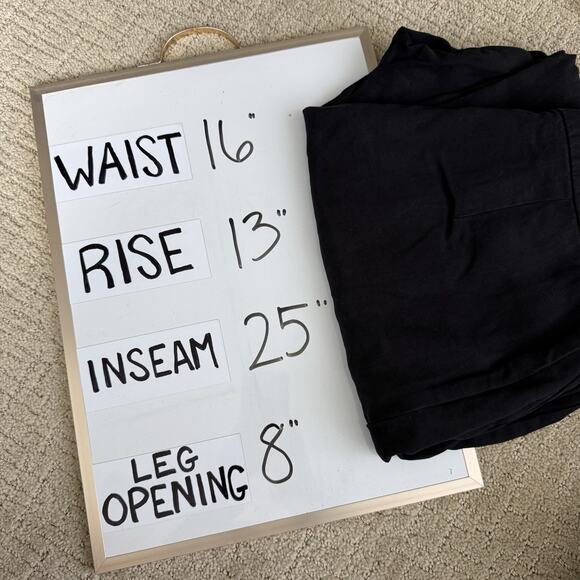 WAIST 16"
RISE 13"
INSEAM 25"
LEG
OPENING 8"